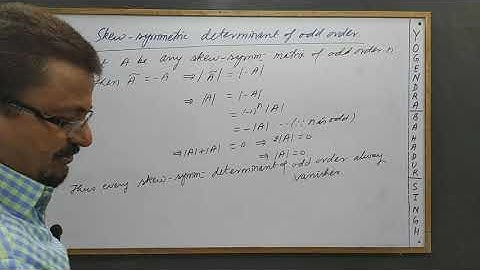 Skew-symmetric determinant of odd order.
A be any skew-symm- matrix of odd order n.
Then Ā = -A ⇒ |Ā| = |-A|
⇒ |A| = |-A|
= (-1)ⁿ |A|
= -|A| -- (∵ n is odd)
⇒ |A|+|A| = 0 ⇒ 2|A| = 0
⇒ |A| = 0
Thus every skew-symm- determinant of odd order always
vanishes.
YOGENDRA BAHADUR SINGH